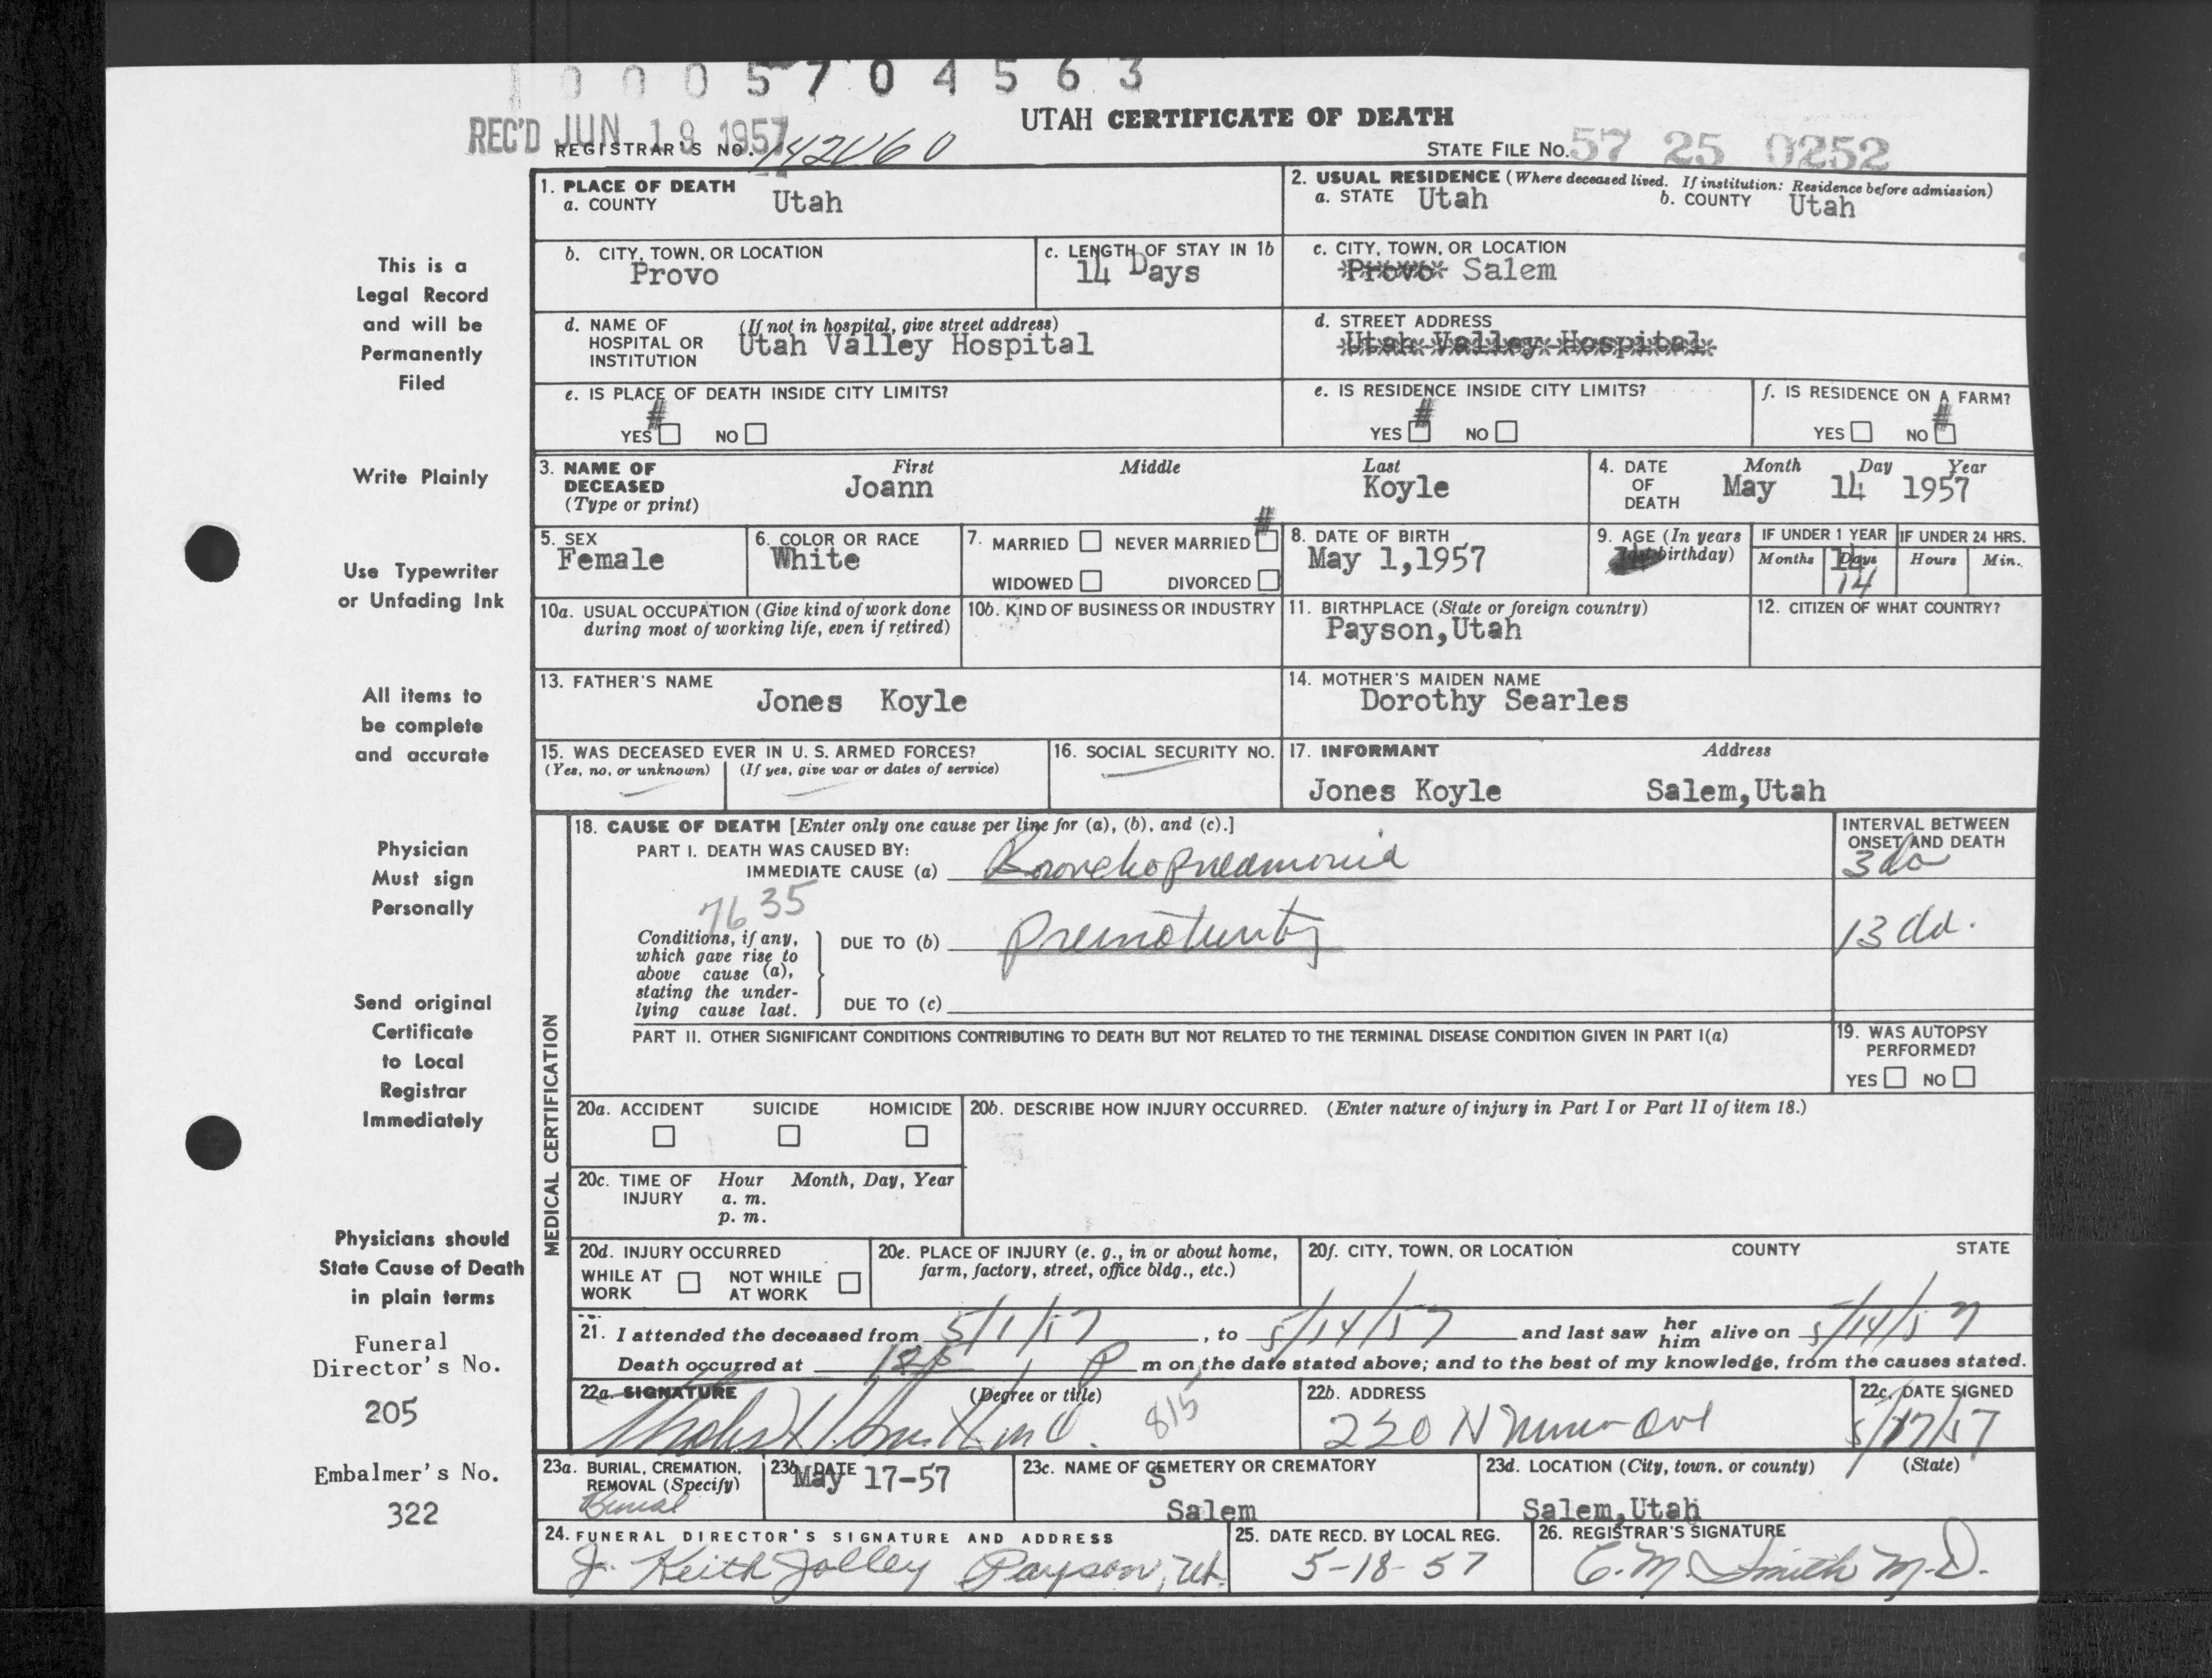 0005704563
UTAH CERTIFICATE OF DEATH
REC'D JUN 19 1957
REGISTRAR'S NO.
STATE FILE NO. 57 25 0252
This is a
Legal Record
and will be
Permanently
Filed
Write Plainly
Use Typewriter
or Unfading Ink
All items to
be complete
and accurate
Physician
Must sign
Personally
Send original
Certificate
to Local
Registrar
Immediately
Physicians should
State Cause of Death
in plain terms
Funeral
Director's No.
205
Embalmer's No.
322
1. PLACE OF DEATH
a. COUNTY Utah
2. USUAL RESIDENCE (Where deceased lived. If institution: Residence before admission)
a. STATE Utah b. COUNTY Utah
b. CITY, TOWN, OR LOCATION
Provo
c. LENGTH OF STAY IN 1b
14 Days
c. CITY, TOWN, OR LOCATION
Provo Salem
d. NAME OF HOSPITAL OR INSTITUTION (If not in hospital, give street address)
Utah Valley Hospital
d. STREET ADDRESS
Utah Valley Hospital
e. IS PLACE OF DEATH INSIDE CITY LIMITS?
YES # NO
e. IS RESIDENCE INSIDE CITY LIMITS?
YES # NO
f. IS RESIDENCE ON A FARM?
YES NO #
3. NAME OF DECEASED (Type or print)
First Middle Last
Joann Koyle
4. DATE OF DEATH
Month Day Year
May 14 1957
5. SEX
Female
6. COLOR OR RACE
White
7. MARRIED NEVER MARRIED #
WIDOWED DIVORCED
8. DATE OF BIRTH
May 1,1957
9. AGE (In years last birthday)
IF UNDER 1 YEAR IF UNDER 24 HRS.
Months Days Hours Min.
14
14
10a. USUAL OCCUPATION (Give kind of work done during most of working life, even if retired)
10b. KIND OF BUSINESS OR INDUSTRY
11. BIRTHPLACE (State or foreign country)
Payson,Utah
12. CITIZEN OF WHAT COUNTRY?
13. FATHER'S NAME
Jones Koyle
14. MOTHER'S MAIDEN NAME
Dorothy Searles
15. WAS DECEASED EVER IN U. S. ARMED FORCES?
(Yes, no, or unknown) (If yes, give war or dates of service)
16. SOCIAL SECURITY NO.
17. INFORMANT Address
Jones Koyle Salem,Utah
MEDICAL CERTIFICATION
18. CAUSE OF DEATH [Enter only one cause per line for (a), (b), and (c).]
INTERVAL BETWEEN ONSET AND DEATH
PART I. DEATH WAS CAUSED BY:
IMMEDIATE CAUSE (a) Bronchopneumonia 3 da
7635
Conditions, if any, which gave rise to above cause (a), stating the underlying cause last.
DUE TO (b) Prematurity 13 da.
DUE TO (c)
PART II. OTHER SIGNIFICANT CONDITIONS CONTRIBUTING TO DEATH BUT NOT RELATED TO THE TERMINAL DISEASE CONDITION GIVEN IN PART I(a)
19. WAS AUTOPSY PERFORMED?
YES NO
20a. ACCIDENT SUICIDE HOMICIDE
20b. DESCRIBE HOW INJURY OCCURRED. (Enter nature of injury in Part I or Part II of item 18.)
20c. TIME OF INJURY Hour Month, Day, Year
a. m.
p. m.
20d. INJURY OCCURRED
WHILE AT WORK NOT WHILE AT WORK
20e. PLACE OF INJURY (e. g., in or about home, farm, factory, street, office bldg., etc.)
20f. CITY, TOWN, OR LOCATION COUNTY STATE
21. I attended the deceased from 5/1/57, to 5/14/57 and last saw her him alive on 5/14/57
Death occurred at P m on the date stated above; and to the best of my knowledge, from the causes stated.
22a. SIGNATURE (Degree or title)
815
22b. ADDRESS
22c. DATE SIGNED
5/17/57
23a. BURIAL, CREMATION, REMOVAL (Specify)
Burial
23b. DATE
May 17-57
23c. NAME OF CEMETERY OR CREMATORY
S
Salem
23d. LOCATION (City, town, or county) (State)
Salem,Utah
24. FUNERAL DIRECTOR'S SIGNATURE AND ADDRESS
J. Keith Jolley Payson, Ut.
25. DATE RECD. BY LOCAL REG.
5-18-57
26. REGISTRAR'S SIGNATURE
C. M. Smith M.D.